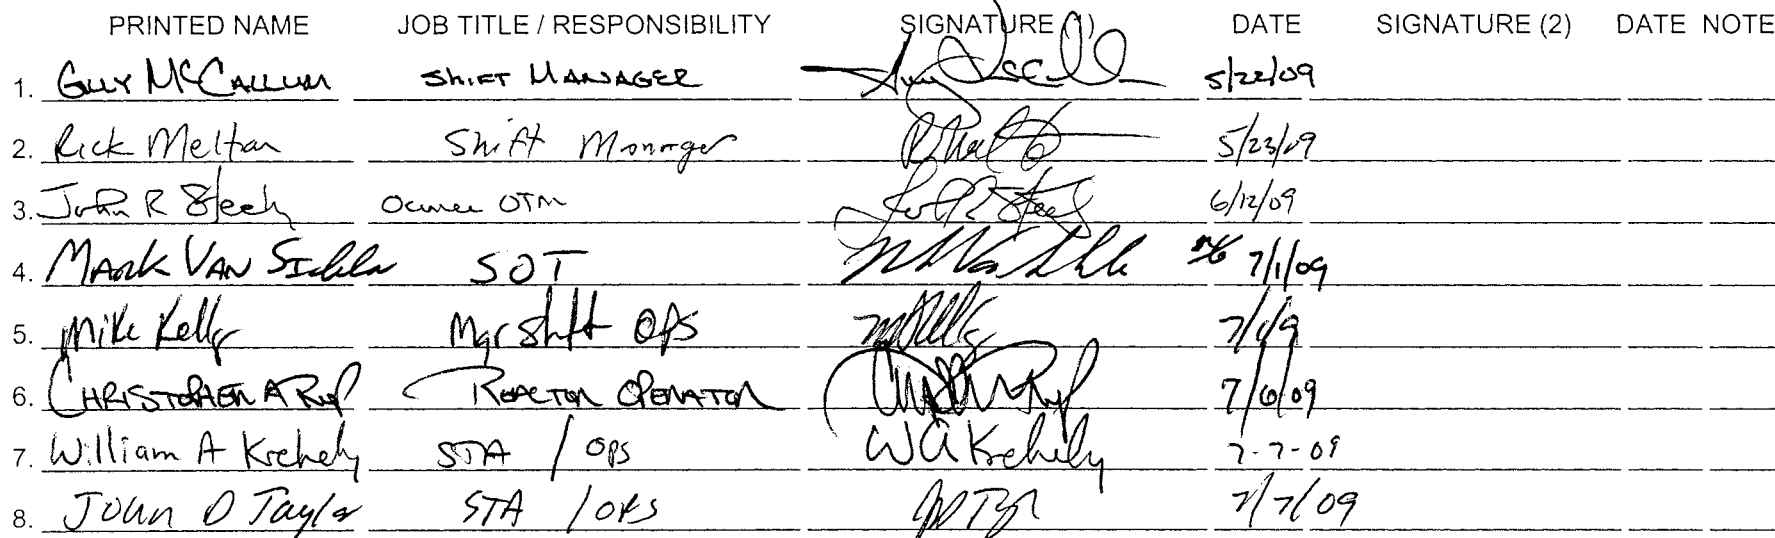 PRINTED NAME JOB TITLE / RESPONSIBILITY SIGNATURE (1) DATE SIGNATURE (2) DATE NOTE
1. GUY McCALLUM SHIFT MANAGER 5/22/09
2. Rick Melton Shift Manager 5/23/09
3. John R Steely OTM 6/12/09
4. MARK VAN SOT 7/1/09
5. Mike Kelly Mgr Shift OPS
6. CHRISTOPHER A REACTOR OPERATOR 7/6/09
7. William A Krehely STA / OPS WA Krehely 7-7-09
8. John D Taylor STA / OPS 7/7/09